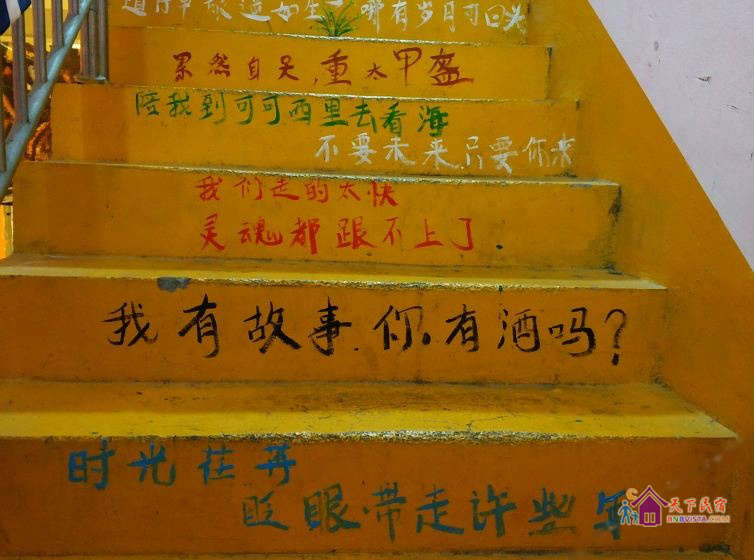 哪有岁月可回头
然自 重太甲盔
陪我到可可西里去看海
不要未来只要你来
我们走的太快
灵魂都跟不上了
我有故事.你.有酒吗?
时光荏苒
眨眼带走许些年
天下民宿
BNBVISTA.COM